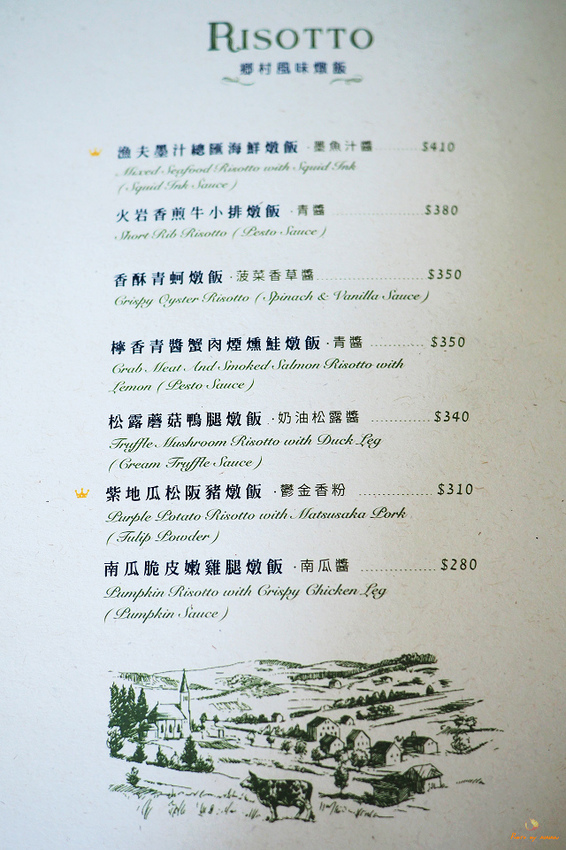 RISOTTO
鄉村風味燉飯
漁夫墨汁總匯海鮮燉飯·墨魚汁醬 $410
Mixed Seafood Risotto with Squid Ink
(Squid Ink Sauce)
火岩香煎牛小排燉飯·青醬 $380
Short Rib Risotto (Pesto Sauce)
香酥青蚵燉飯·菠菜香草醬 $350
Crispy Oyster Risotto (Spinach & Vanilla Sauce)
檸香青醬蟹肉煙燻鮭燉飯·青醬 $350
Crab Meat And Smoked Salmon Risotto with
Lemon (Pesto Sauce)
松露蘑菇鴨腿燉飯·奶油松露醬 $340
Truffle Mushroom Risotto with Duck Leg
(Cream Truffle Sauce)
紫地瓜松阪豬燉飯·鬱金香粉 $310
Purple Potato Risotto with Matsusaka Pork
(Tulip Powder)
南瓜脆皮嫩雞腿燉飯·南瓜醬 $280
Pumpkin Risotto with Crispy Chicken Leg
(Pumpkin Sauce)